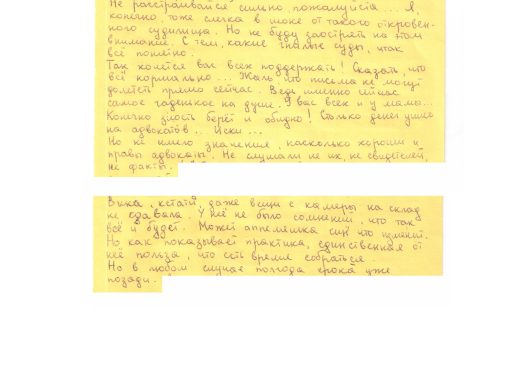 Не расстраивайся сильно, пожалуйста... Я,
конечно, тоже слегка в шоке от такого откровен-
ного судилища. Но не буду заострять на этом
внимание. С тем, какие гнилые суды, итак
всё понятно.
Так хочется вас всех поддержать! Сказать, что
всё нормально... Жаль, что письма не могут
долететь прямо сейчас. Ведь именно сейчас
самое гаденькое на душе. У вас всех и у мамы...
Конечно злость берёт и обидно! Столько денег ушло
на адвокатов.. Иски...
Но не имело значения, насколько хороши и
правы адвокаты. Не слушали не их, не свидетелей,
не факты.
Вика, кстати, даже вещи с камеры на склад
не сдавала. У неё не было сомнений, что так
всё и будет. Может аппеляшка ещё что изменит.
Но как показывает практика, единственная от
неё польза, что есть время собраться.
Но в любом случае полгода срока уже
позади.